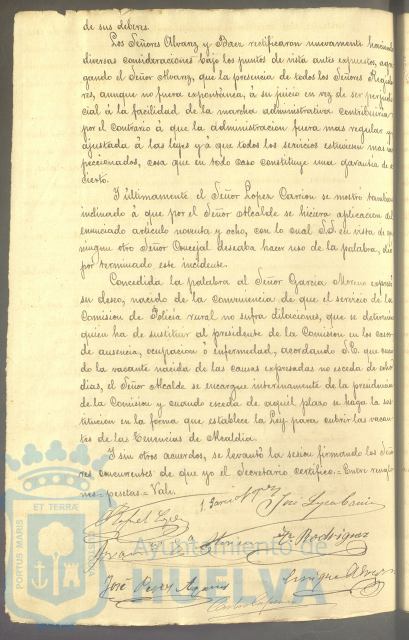 de sus deberes.
Los Señores Alvarez y Baer rectificaron nuevamente haciendo
diversas consideraciones bajo los puntos de vista antes expuestos, agre
gando el Señor Alvarez, que la presencia de todos los Señores Regido
res, aunque no fuera expontánea, á su juicio en vez de ser perjudi
cial á la facilidad de la marcha administrativa contribuiria
por el contrario á que la administracion fuera mas regular y
ajustada á las leyes y á que todos los servicios estuviesen mas ins
peccionados, cosa que en todo caso constituye una garantia de a
cierto.
Y últimamente el Señor Lopez Carrion se mostró tambien
inclinado á que por el Señor Alcalde se hiciera aplicacion del
enunciado articulo noventa y ocho, con lo cual S.S. en vista de que
ningun otro Señor Concejal deseaba hacer uso de la palabra, dió
por terminado este incidente.
Concedida la palabra al Señor Garcia Moreno expresó
su deseo, nacido de la conveniencia de que el servicio de la
Comision de Policia rural no sufra dilaciones, que se determine
quien ha de sustituir al presidente de la Comision en los casos
de ausencia, ocupacion ó enfermedad, acordando S.E. que cuan
do la vacante nacida de las causas expresadas no exceda de ocho
dias, el Señor Alcalde se encargue interinamente de la presidencia
de la Comision y cuando exceda de aquel plazo se haga la sus
titucion en la forma que establece la Ley para cubrir las vacan
tes de las Tenencias de Alcaldia.
Y sin otros acuerdos, se levantó la sesion firmando los Seño
res concurrentes de que yo el Secretario certifico.=Entre renglo
nes=pesetas=Vale.
José Lopez Carrion
Fr. Rodriguez
José Perez
ET TERRÆ
PORTUS MARIS
Ayuntamiento de
HUELVA